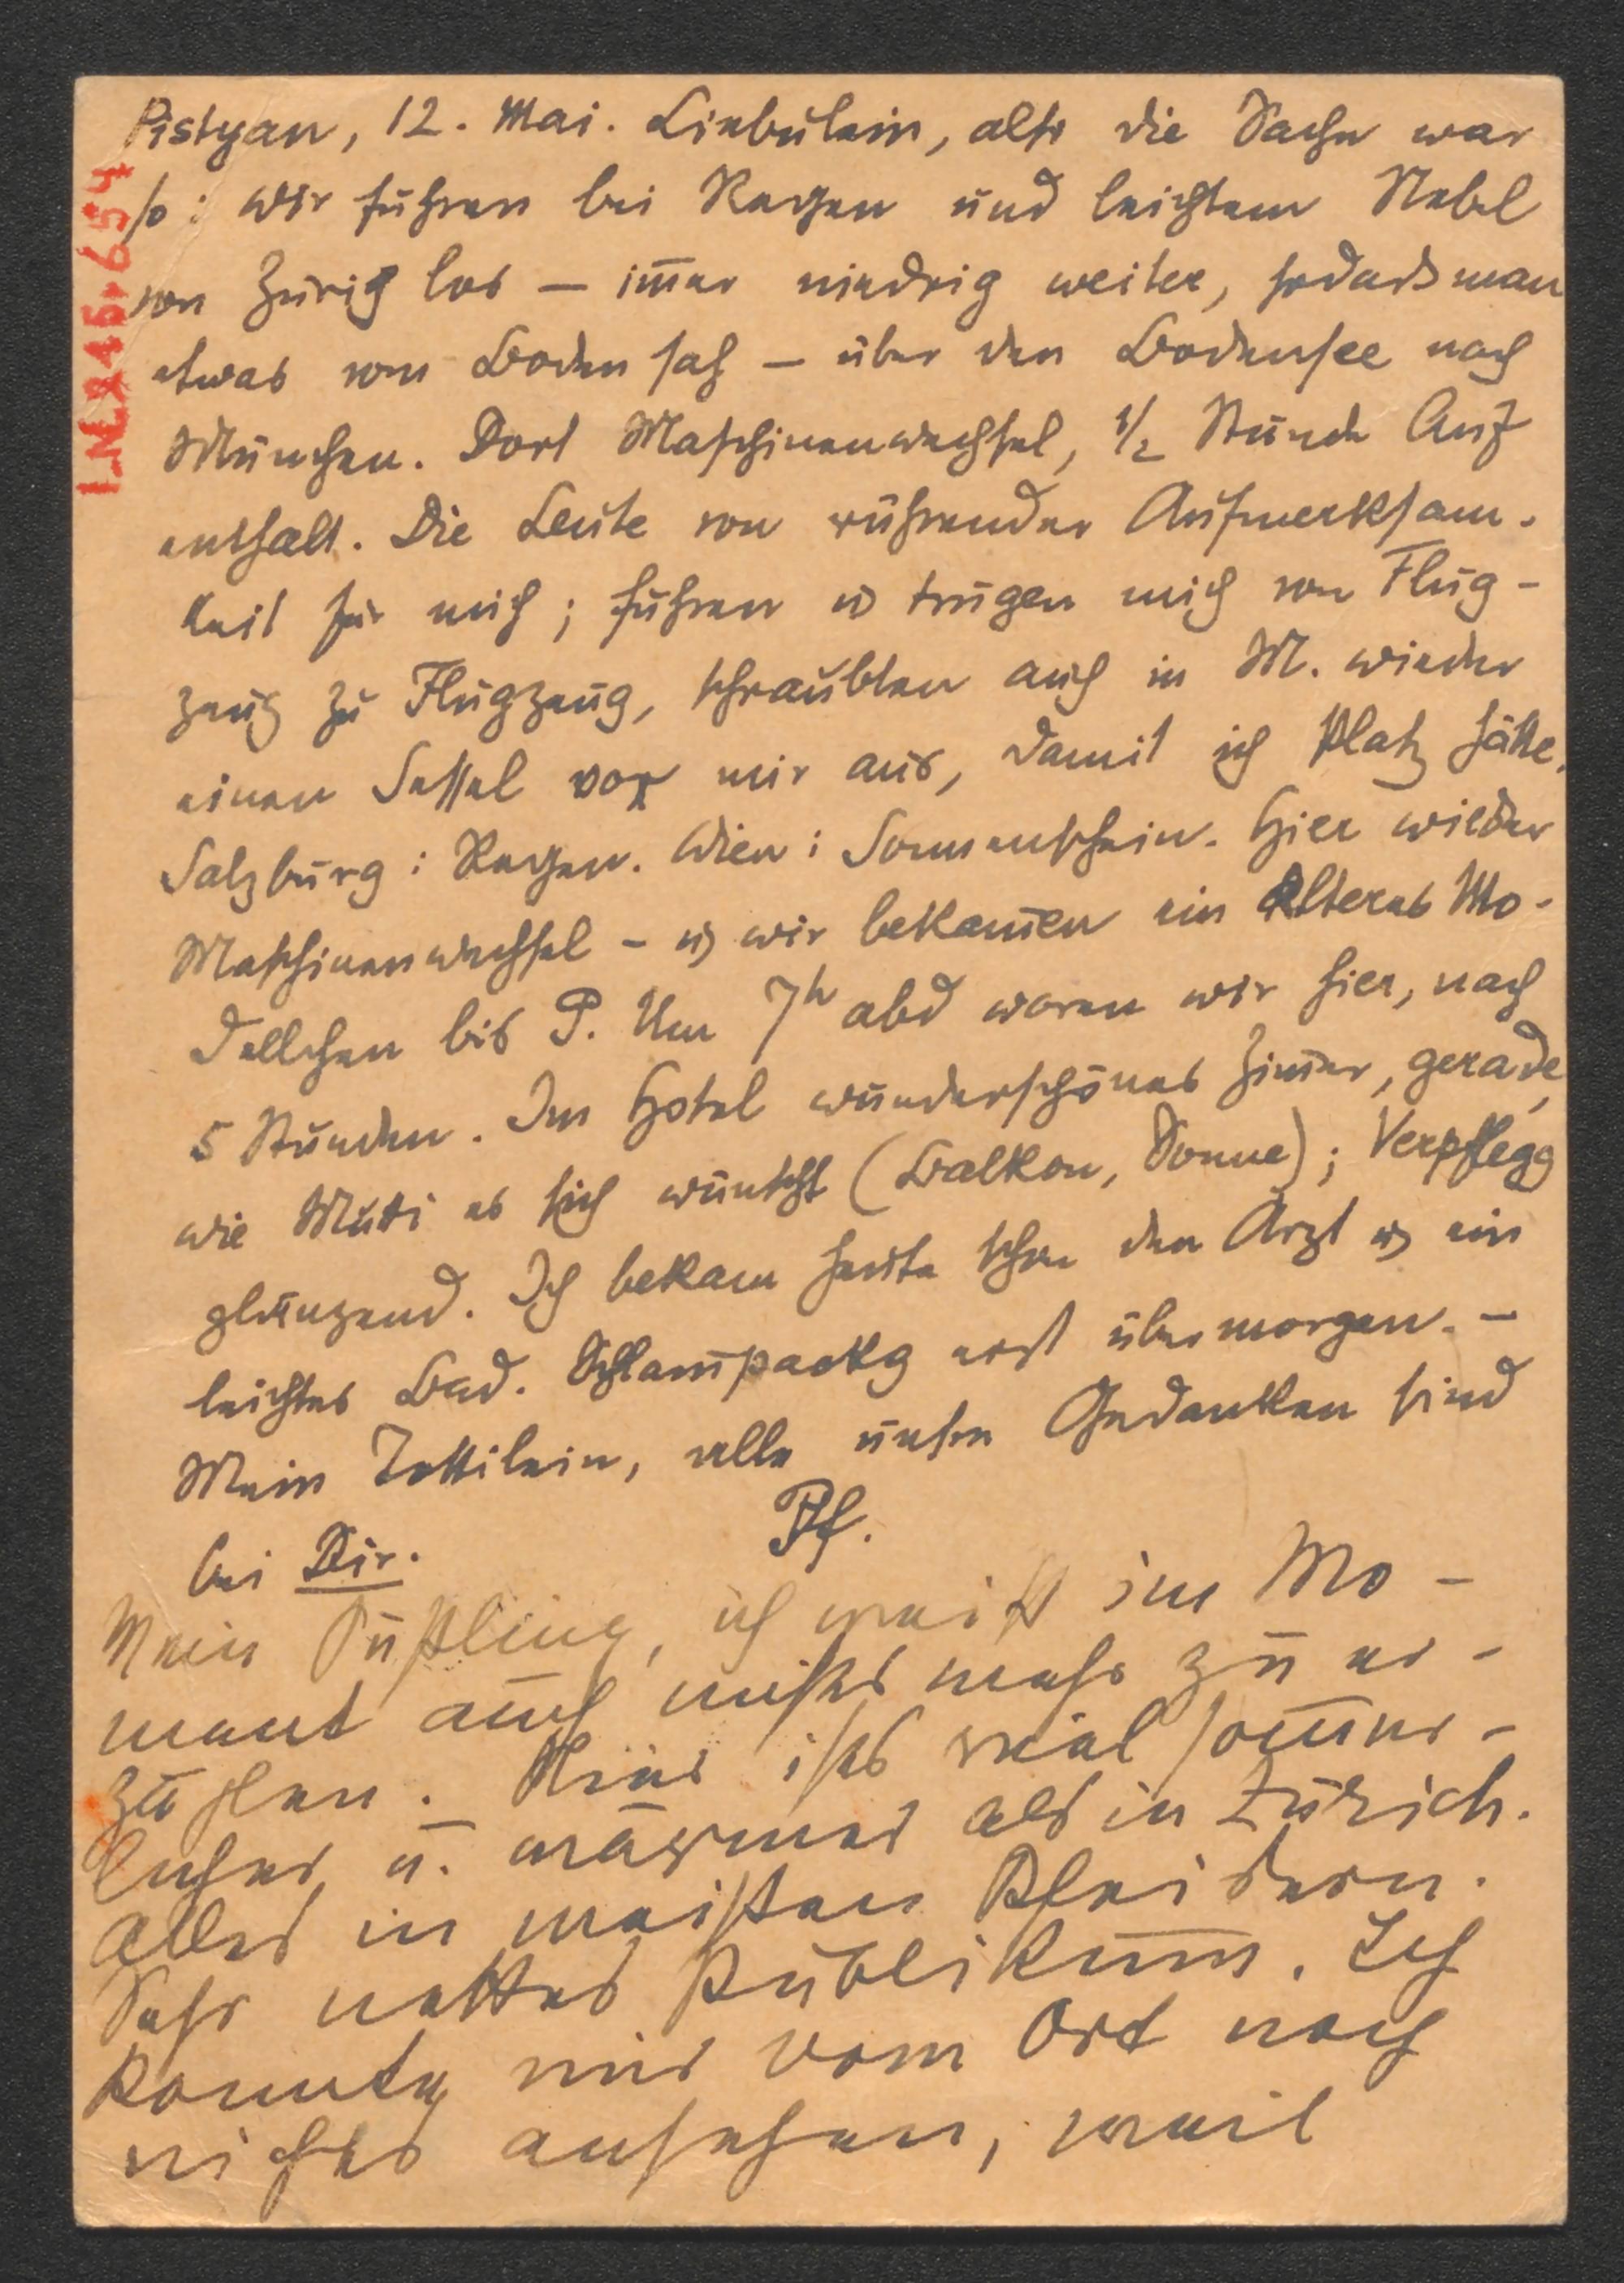 Pistyan, 12. Mai. Liebulein, also die Sache war
so: wir fuhren bei Regen und leichtem Nebel
von Zürich los — im̅er niedrig weiter, sodass man
etwas vom Boden sah — über den Bodensee nach
München. Dort Maschinenwechsel, 1/2 Stunde Auf
enthalt. Die Leute von rührender Aufmerksam-
keit für mich; fuhren u trugen mich von Flug-
zeug zu Flugzeug, schraubten auch in M. wieder
einen Sessel vor mir aus, damit ich Platz hätte.
Salzburg: Regen. Wien: Sonnenschein. Hier wieder
Maschinenwechsel - u wir bekam̅en ein älteres Mo-
dellchen bis P. Um 7h abd waren wir hier, nach
5 Stunden. Im Hotel wunderschönes Zim̅er, gerade,
wie Mutti es sich wünscht (Balkon, Sonne); Verpflegg
glänzend. Ich bekam heute schon den Arzt u ein
leichtes Bad. Schlam̅packg erst übermorgen. —
Mein Zottilein, alle unsre Gedanken sind
bei Dir. Pf.
Mein Süßling, ich weiß im Mo-
ment auch nichts mehr zu er-
zählen. Hier ists viel som̅er-
licher u. wärmer als in Zürich.
Alles in weißen Kleidern.
Sehr nettes Publikum. Ich
konnte mir vom Ort noch
nichts ansehen, weil
I.N. 246.654